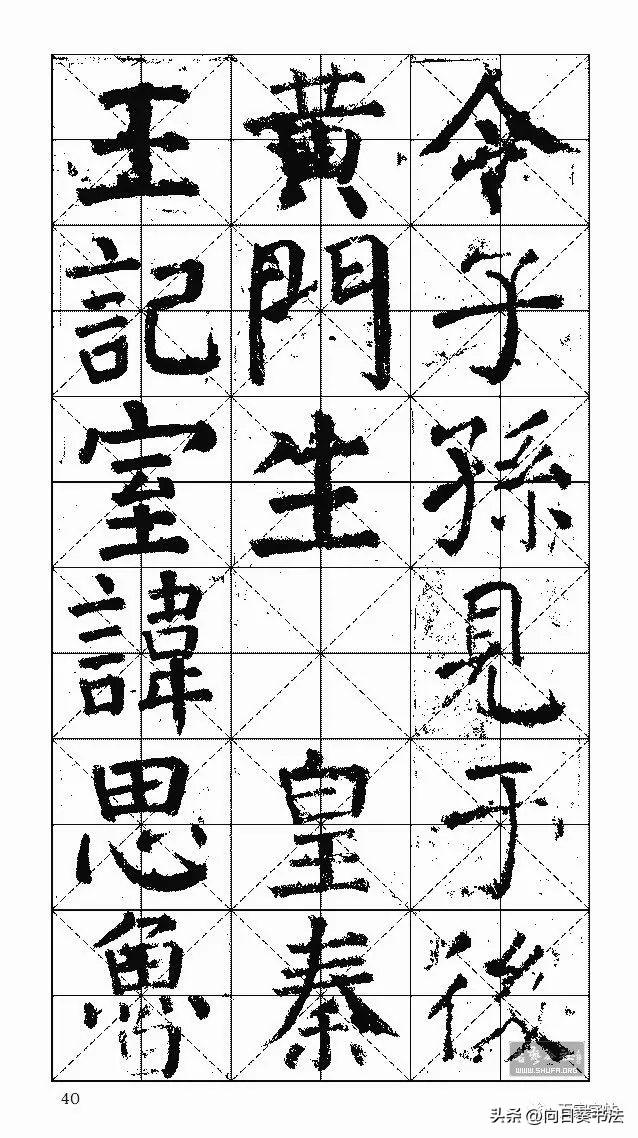 令子孫見于後
黄門生 皇秦
王記室諱思魯
40
WWW.SHUFA.ORG
头条 @向日葵书法